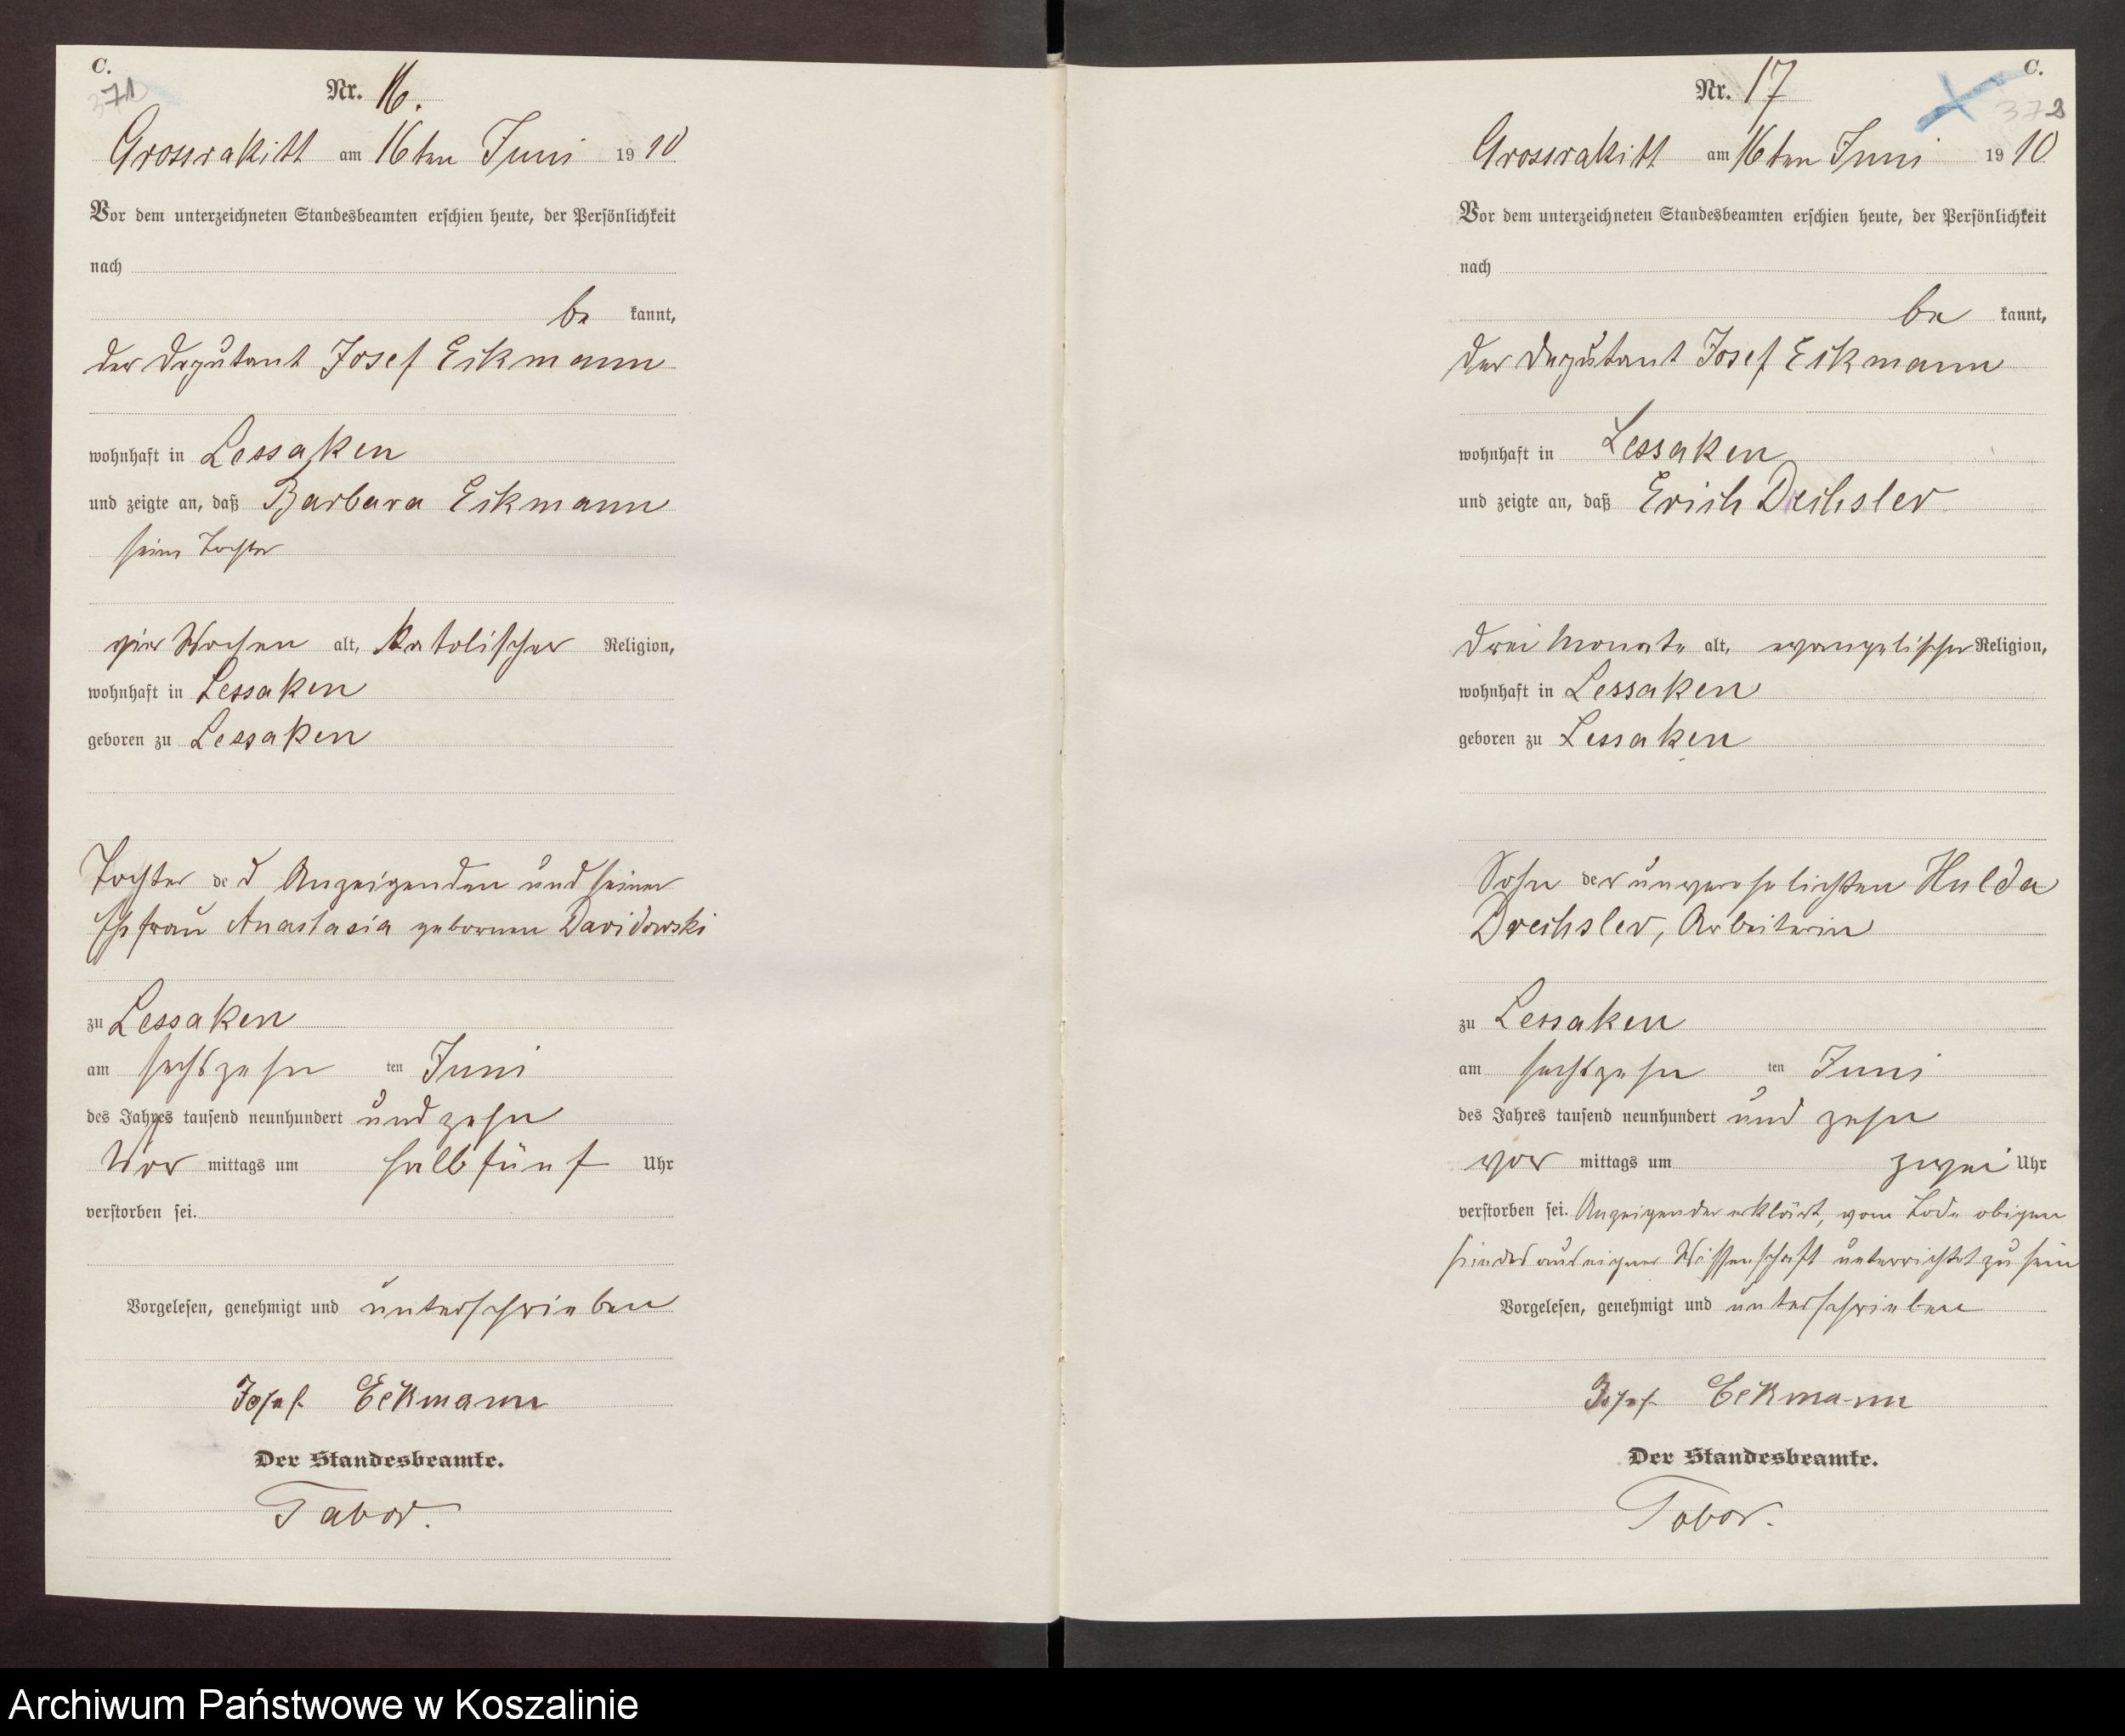 C.
371
Nr. 16.
Grossrakitt am 16ten Juni 1910
Vor dem unterzeichneten Standesbeamten erschien heute, der Persönlichkeit
nach
be kannt,
der Deputant Josef Eikmann
wohnhaft in Lessaken
und zeigte an, daß Barbara Eikmann
seine Tochter
vier Wochen alt, katolischer Religion,
wohnhaft in Lessaken
geboren zu Lessaken
Tochter de d Anzeigenden und seiner
Ehefrau Anastasia gebornen Davidowski
zu Lessaken
am sechszehn ten Juni
des Jahres tausend neunhundert und zehn
Vor mittags um halb fünf Uhr
verstorben sei.
Vorgelesen, genehmigt und unterschrieben
Josef Eekmann
Der Standesbeamte.
Tabor.
C.
372
Nr. 17
Grossrakitt am 16ten Juni 1910
Vor dem unterzeichneten Standesbeamten erschien heute, der Persönlichkeit
nach
be kannt,
der Deputant Josef Eikmann
wohnhaft in Lessaken
und zeigte an, daß Erich Drechsler
drei Monate alt, evangelischer Religion,
wohnhaft in Lessaken
geboren zu Lessaken
Sohn der unverehelichten Hulda
Drechsler, Arbeiterin
zu Lessaken
am sechszehn ten Juni
des Jahres tausend neunhundert und zehn
vor mittags um zwei Uhr
verstorben sei. Anzeigender erklärt, vom Tode obigen
Kindes aus eigner Wissenschaft unterrichtet zu sein
Vorgelesen, genehmigt und unterschrieben
Josef Eekmann
Der Standesbeamte.
Tabor.
Archiwum Państwowe w Koszalinie